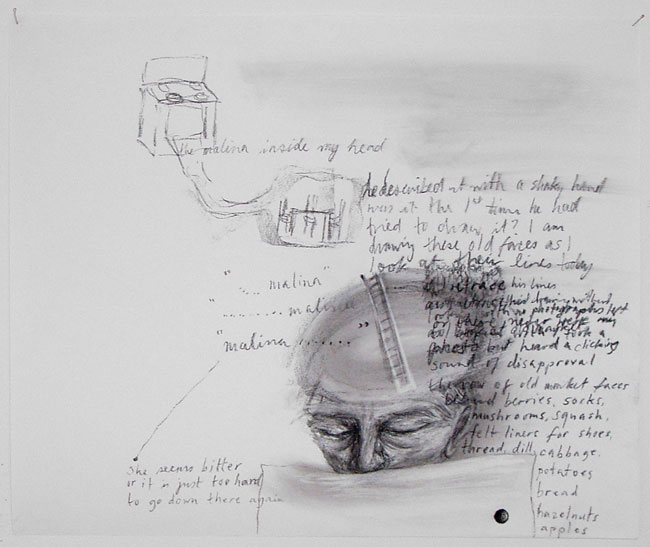 the malina inside my head
he described it with a shaky hand
was it the 1st time he had
tried to draw it? I am
drawing these old faces as I
look at their lines today
"... malina"
"........ malina
"malina ......"
I retrace his lines
photographs left
but heard a clicking
sound of disapproval
the row of old market faces
behind berries, socks,
mushrooms, squash,
felt liners for shoes,
thread, dill, cabbage.
potatoes
bread
hazelnuts
apples
she seems bitter
or is it just too hard
to go down there again